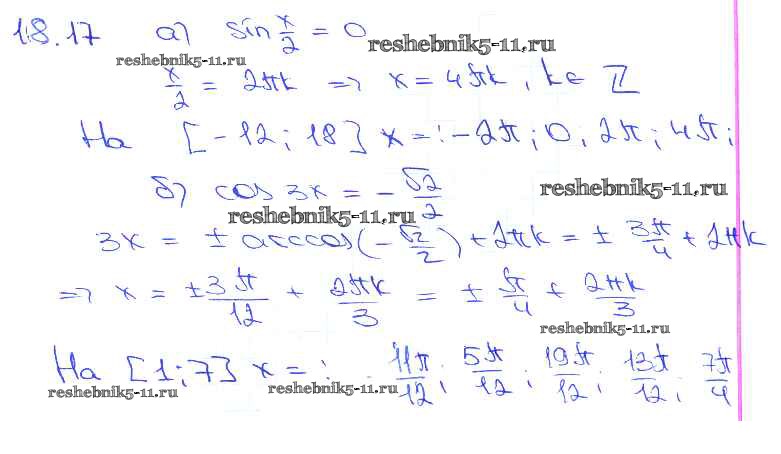 18.17 а) sin x/2 = 0
reshebnik5-11.ru
reshebnik5-11.ru
x/2 = 2πk => x = 4πk, k ∈ Z
На [-12; 18] x = : -2π; 0; 2π; 4π;
б) cos 3x = - √2/2
reshebnik5-11.ru
reshebnik5-11.ru
3x = ± arccos(-√2/2) + 2πk = ± 3π/4 + 2πk
=> x = ± 3π/12 + 2πk/3 = ± π/4 + 2πk/3
reshebnik5-11.ru
На [1; 7] x = : 11π/12; 5π/12; 19π/12; 13π/12; 7π/4
reshebnik5-11.ru
reshebnik5-11.ru